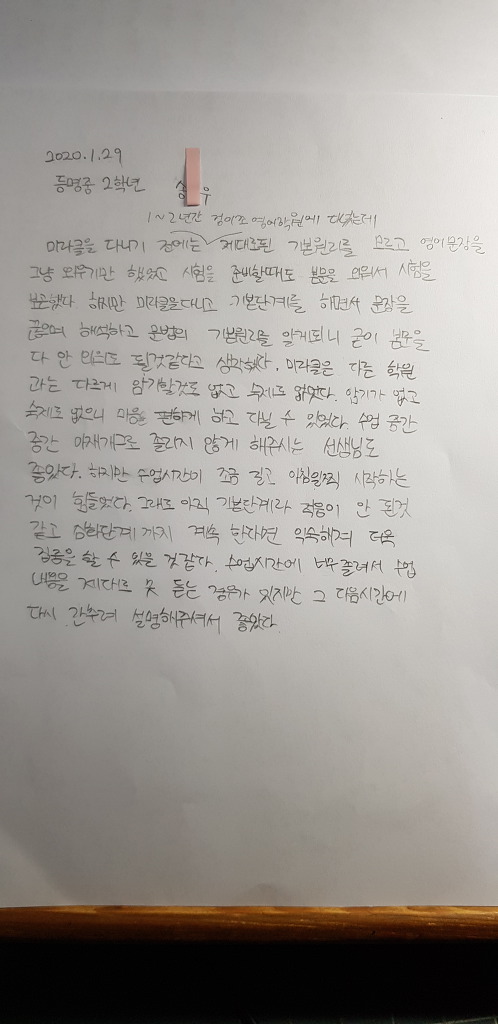 2020.1.29
등명중 2학년 송 우
1~2년간 정이조 영어학원에 다녔는데
미라클을 다니기 전에는 제대로된 기본원리를 모르고 영어문장을
그냥 외우기만 했었고 시험을 준비할때도 본문을 외워서 시험을
보곤했다. 하지만 미라클을 다니고 기본단계를 하면서 문장을
끊으며 해석하고 문법의 기본원리를 알게되니 굳이 본문을
다 안 외워도 될것같다고 생각했다. 미라클은 다른 학원
과는 다르게 암기할것도 없고 숙제도 없었다. 암기가 없고
숙제도 없으니 마음을 편하게 하고 다닐 수 있었다. 수업 중간
중간 아재개그로 졸리지 않게 해주시는 선생님도
좋았다. 하지만 수업시간이 조금 길고 아침일찍 시작하는
것이 힘들었다. 그래도 아직 기본단계라 적응이 안 된것
같고 심화단계까지 계속 한다면 익숙해져 더욱
집중을 할 수 있을 것같다. 수업시간에 너무 졸려서 수업
내용을 제대로 못 듣는 경우가 있지만 그 다음시간에
다시 간추려 설명해주셔서 좋았다